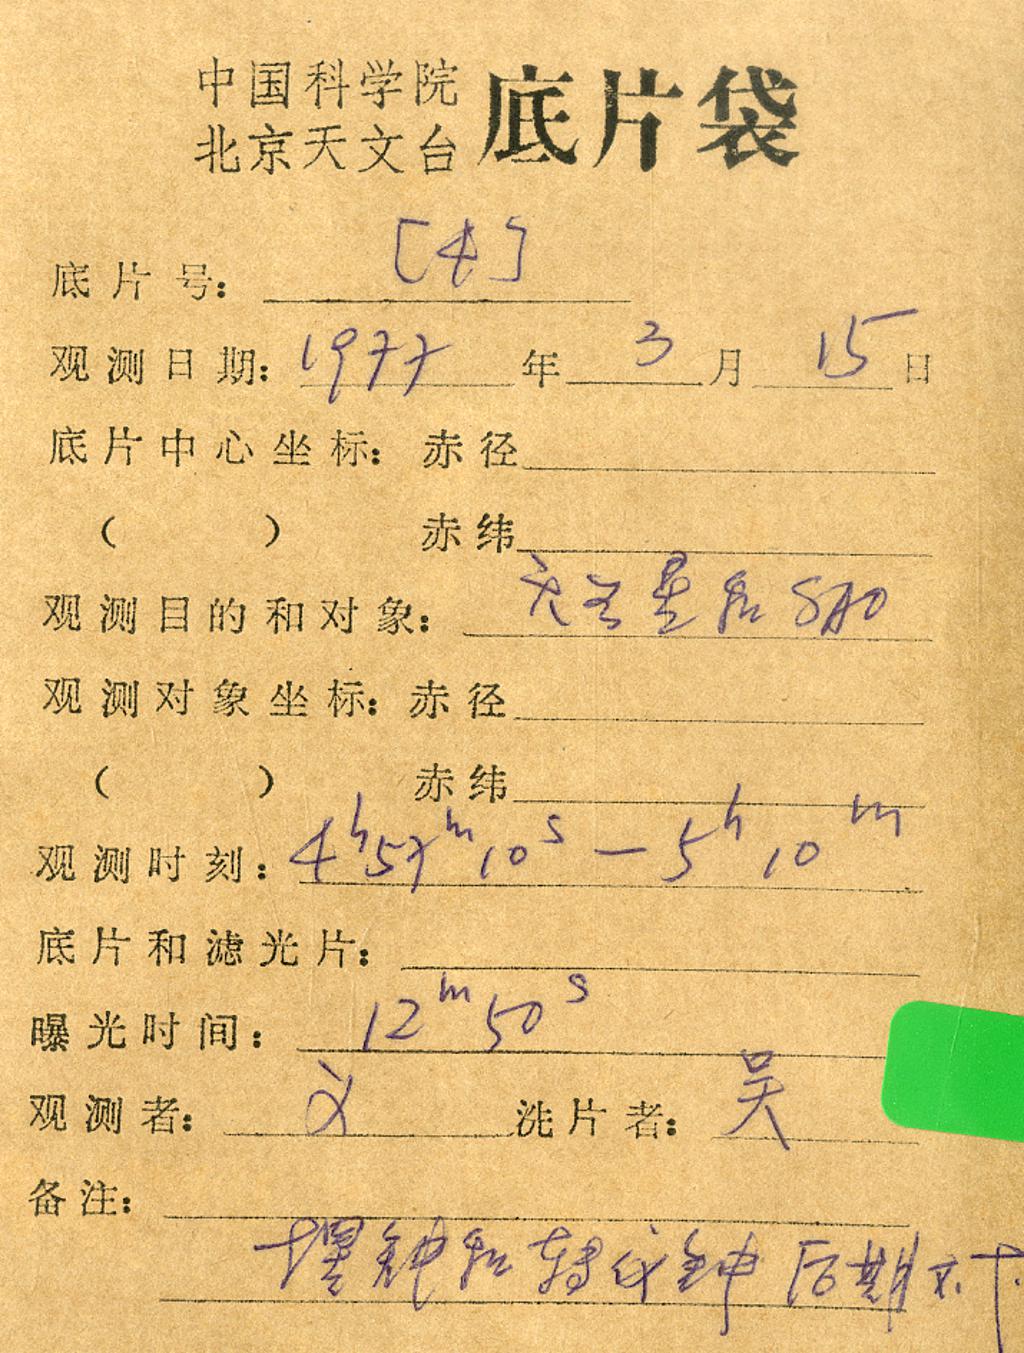 中国科学院
北京天文台 底片袋
底片号: [4]
观测日期: 1977 年 3 月 15 日
底片中心坐标: 赤径
( ) 赤纬
观测目的和对象: 天王星和 SAO
观测对象坐标: 赤径
( ) 赤纬
观测时刻: 4h57m10s — 5h10m
底片和滤光片:
曝光时间: 12m50s
观测者: 洗片者: 吴
备注:
钟和 钟 后期不